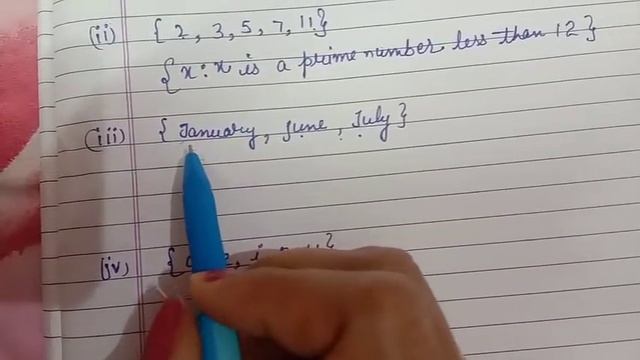 (ii) { 2, 3, 5, 7, 11}
{x : x is a prime number less than 12}
(iii) {January, June, July}
(iv) {